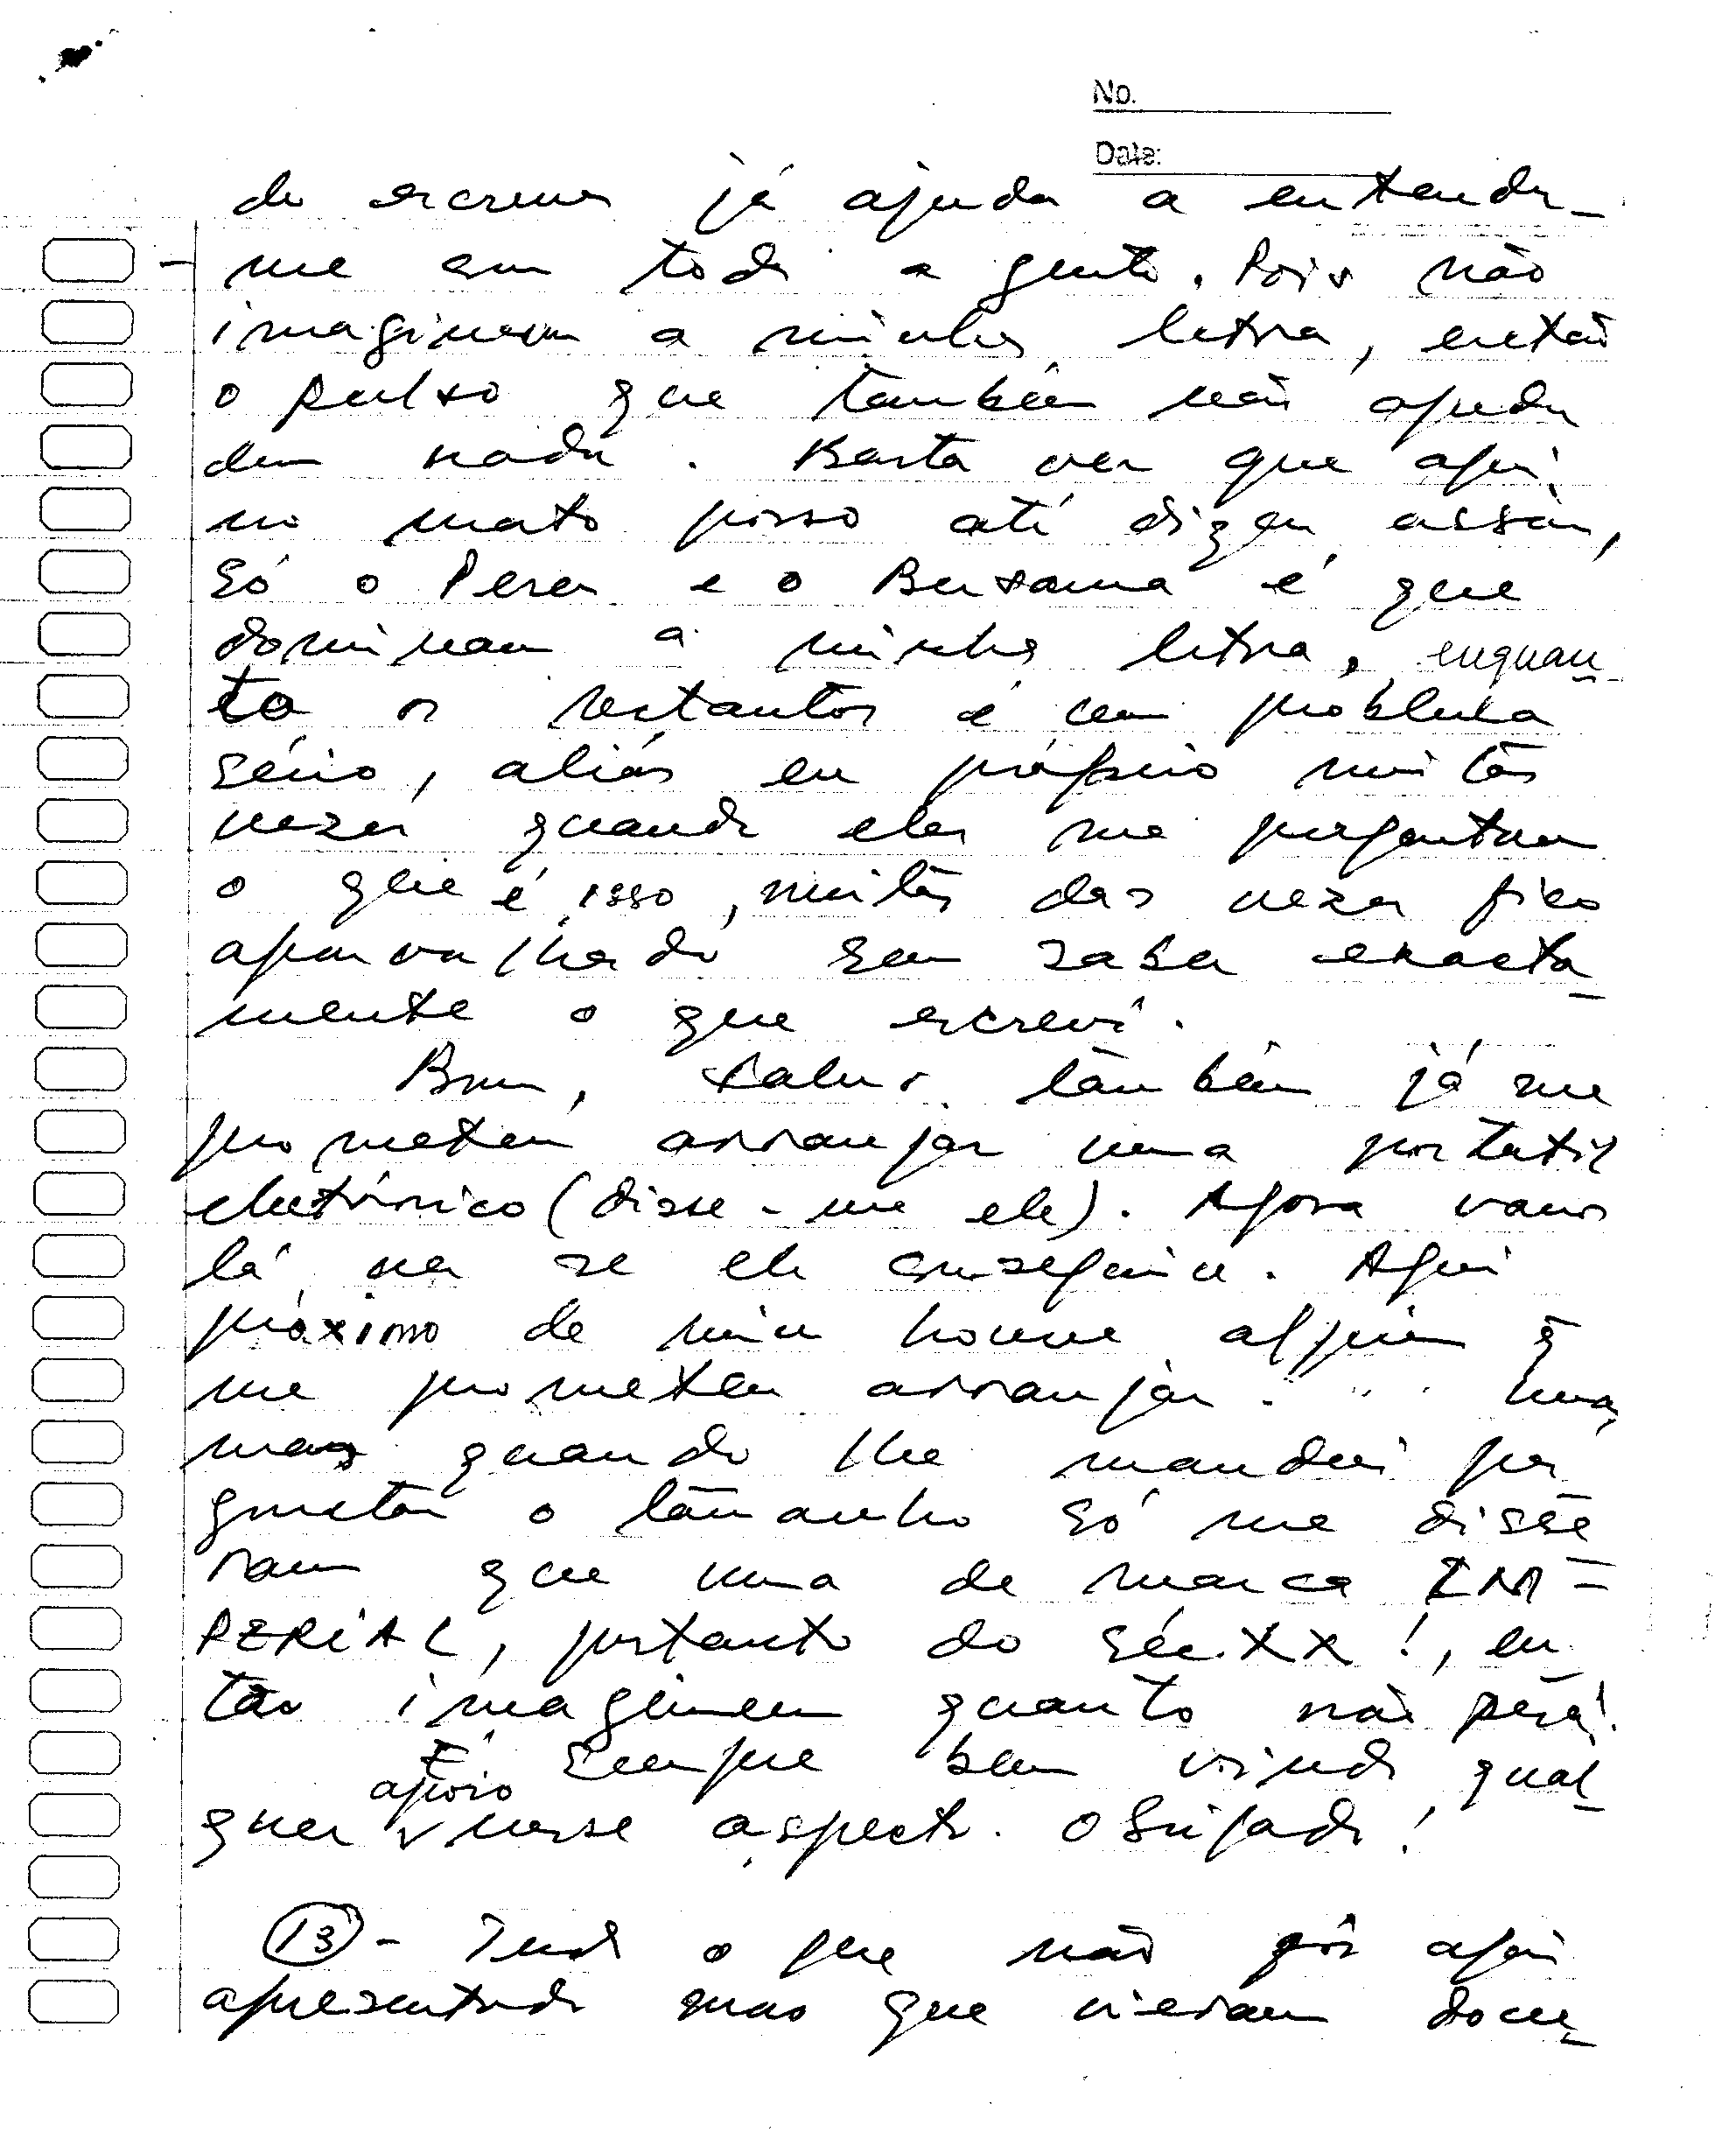 No.
Date:
de escrever já ajuda a entender-
me em toda a gente. Pois não
imaginam a minha letra, então
o pulso que também não ajuda
em nada. Basta ver que aqui
no mato posso até dizer assim,
só o Peres e o é que
dominam a minha letra, enquan-
to os restantes é um problema
sério, aliás eu próprio muitas
vezes quando eles me perguntam
o que é isso, muitas das vezes fico
aparvalhado sem saber exacta-
mente o que escrevi.
Bom, também já me
prometeu arranjar uma portatil
eletrónico (disse-me ele). Agora vamos
lá ver se ele conseguiu. Aqui
próximo de mim houve alguém q̃
me prometeu arranjar. uma,
mas quando lhe mandei per
guntar o tamanho só me disse
ram que uma de marca IM-
PERIAL, portanto do séc. XX!, en
tão imaginem quanto não pesa!
É sempre bem vindo qual-
quer apoio nesse aspecto. Obrigado!
(13) - Tudo o que não foi aqui
apresentado mas que vieram docu-